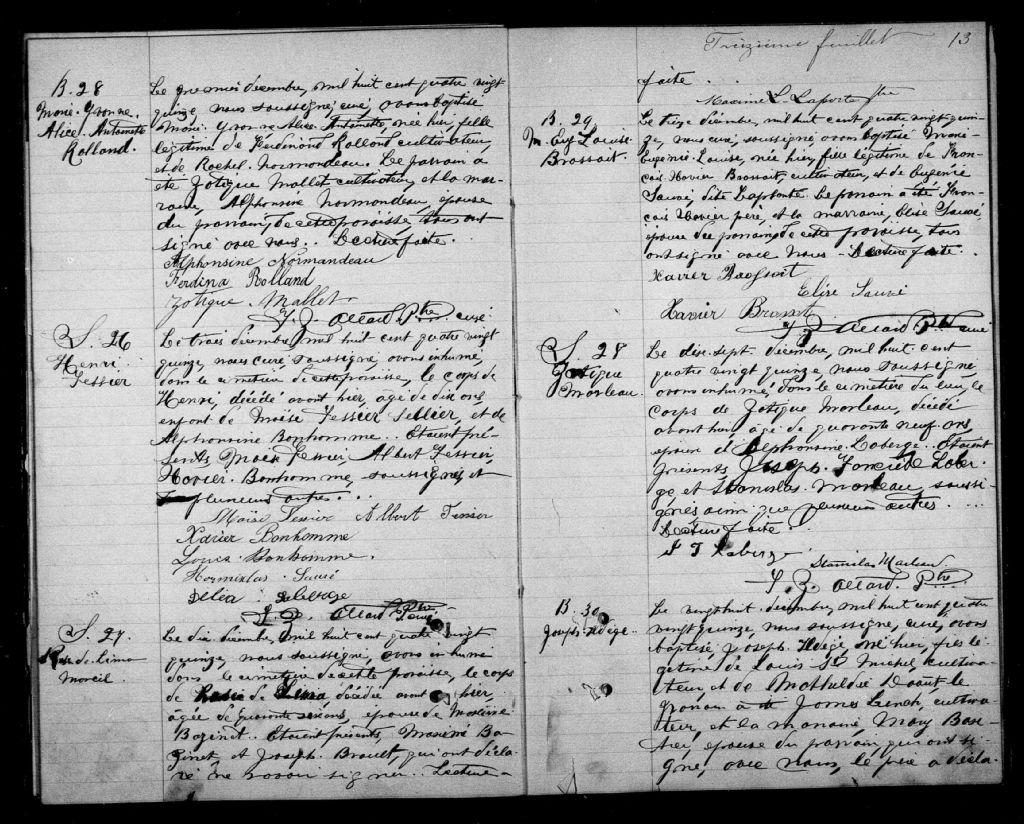 B. 28
Marie-Yvonne
Alice-Antoinette
Rolland.
Le premier décembre, mil huit cent quatre vingt
quinze, nous soussigné, curé, avons baptisé
Marie-Yvonne-Alice-Antoinette, née hier, fille
légitime de Ferdinand Rolland cultivateur,
et de Rachel Normandeau. Le parrain a
été Zotique Mallet cultivateur, et la mar-
raine, Alphonsine Normandeau, épouse
du parrain, de cette paroisse, tous ont
signé avec nous. Lecture faite.
Alphonsine Normandeau
Ferdina Rolland
Zotique Mallet
J. Z. Allard Ptre curé
S. 26
Henri
Tessier
Le trois décembre, mil huit cent quatre vingt
quinze, nous curé, soussigné, avons inhumé,
dans le cimetière de cette paroisse, le corps de
Henri, décédé avant hier, âgé de dix ans,
enfant de Moïse Tessier Sellier, et de
Alphonsine Bonhomme. Etaient pré-
sents Moïse Tessier, Albert Tessier,
Xavier Bonhomme, soussignés, et
plusieurs autres...
Moïse Tessier Albert Tessier
Xavier Bonhomme
Louis Bonhomme.
Hormisdas Sauvé
Déléa Laberge
J. Z. Allard Ptre curé
S. 27
Rose de Lima
Marcil
Le dix décembre, mil huit cent quatre vingt
quinze, nous soussigné, avons inhumé
dans le cimetière de cette paroisse, le corps
de Rose de Lima, décédée avant hier,
âgée de quarante six ans, épouse de Maxime
Baginet. Etaient présents, Maxime Ba-
ginet et Joseph Brault, qui ont décla-
ré ne savoir signer. Lecture
Treizième feuillet 13
faite.
Maxime L. Laporte Ptre
B. 29
M. Eug Louise
Brossoit.
Le treize décembre, mil huit cent quatre vingt quin-
ze, nous curé, soussigné, avons baptisé Marie
Eugénie-Louise, née hier, fille légitime de Fran-
çois Xavier Brossoit, cultivateur, et de Eugénie
Sauvé, dite Laplante. Le parrain a été Fran-
çois Xavier père, et la marraine, Elise Sauvé,
épouse du parrain, de cette paroisse, tous
ont signé avec nous - Lecture faite.
Xavier Brossoit
Elise Sauvé
Xavier Brossoit
J. Z. Allard Ptre curé
S. 28
Zotique
Marleau.
Le dix-sept décembre, mil huit cent
quatre vingt quinze, nous soussigné
avons inhumé, dans le cimetière du lieu, le
corps de Zotique Marleau, décédé
avant hier âgé de quarante neuf ans,
époux d'Alphonsine Laberge. Etaient
présents Joseph Laber-
ge et Stanislas Marleau, soussi-
gnés ainsi que plusieurs autres. ...
Lecture faite.
J T Laberge
Stanislas Marleau
J. Z. Allard. Ptre
B. 30
Joseph-Adège
Le vingt huit décembre, mil huit cent quatre
vingt quinze, nous soussigné, curé, avons
baptisé, Joseph Adège, né hier, fils lé-
gitime de Louis St Michel cultiva-
teur, et de Mathilde Daoust, le
parrain a été James Lench, cultiva-
teur, et la marraine, Mary
épouse du parrain qui ont si-
gné, avec nous, le père a décla-